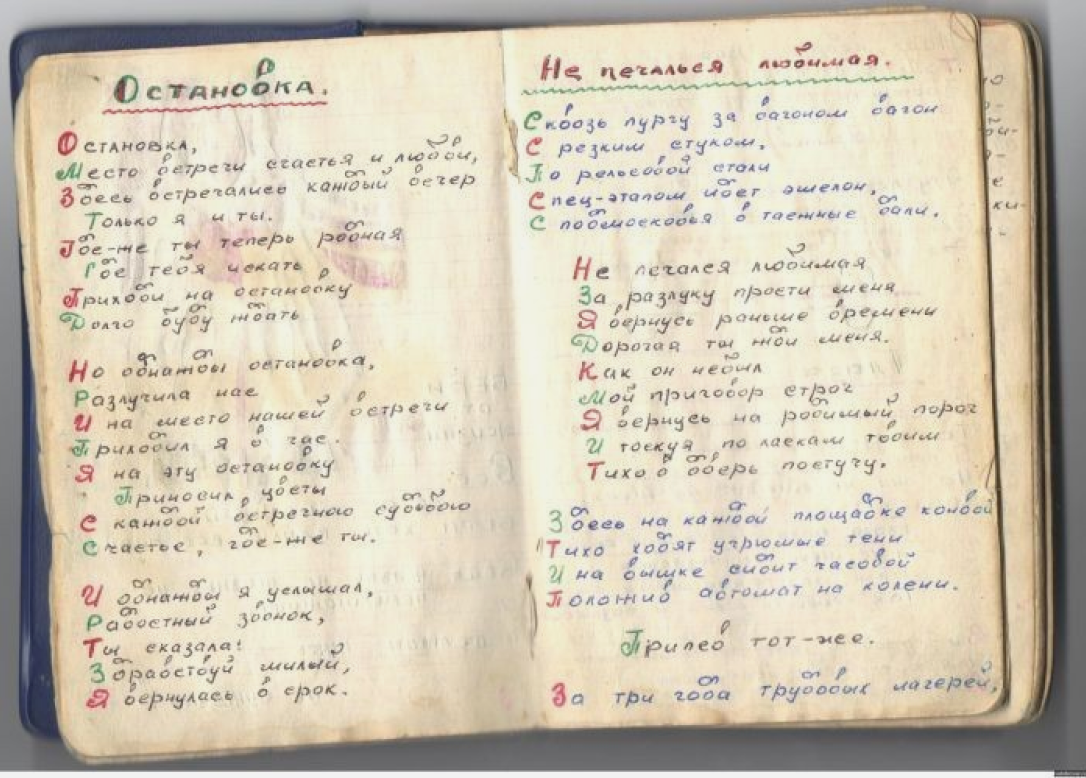 Остановка.
Остановка,
Место встречи счастья и любви,
Здесь встречались каждый вечер
Только я и ты.
Где-же ты теперь родная
Где тебя искать
Приходи на остановку
Долго буду ждать
Но однажды остановка,
Разлучила нас
И на место нашей встречи
Приходил я в час.
Я на эту остановку
Приносил цветы
С каждой встречною судьбою
Счастье, где-же ты.
И однажды я услышал,
Радостный звонок,
Ты сказала:
Здравствуй милый,
Я вернулась в срок.
Не печалься любимая.
Сквозь пургу за вагоном вагон
С резким стуком,
По рельсовой стали
Спец-этапом идет эшелон,
С подмосковья в таежные дали.
Не печался любимая
За разлуку прости меня
Я вернусь раньше времени
Дорогая ты жди меня.
Как он небыл
Мой приговор строг
Я вернусь на родимый порог
И тоскуя по ласкам твоим
Тихо в дверь постучу.
Здесь на каждой площадке конвой
Тихо ходят угрюмые тени
И на вышке сидит часовой
Положив автомат на колени.
Припев тот-же.
За три года трудовых лагерей,